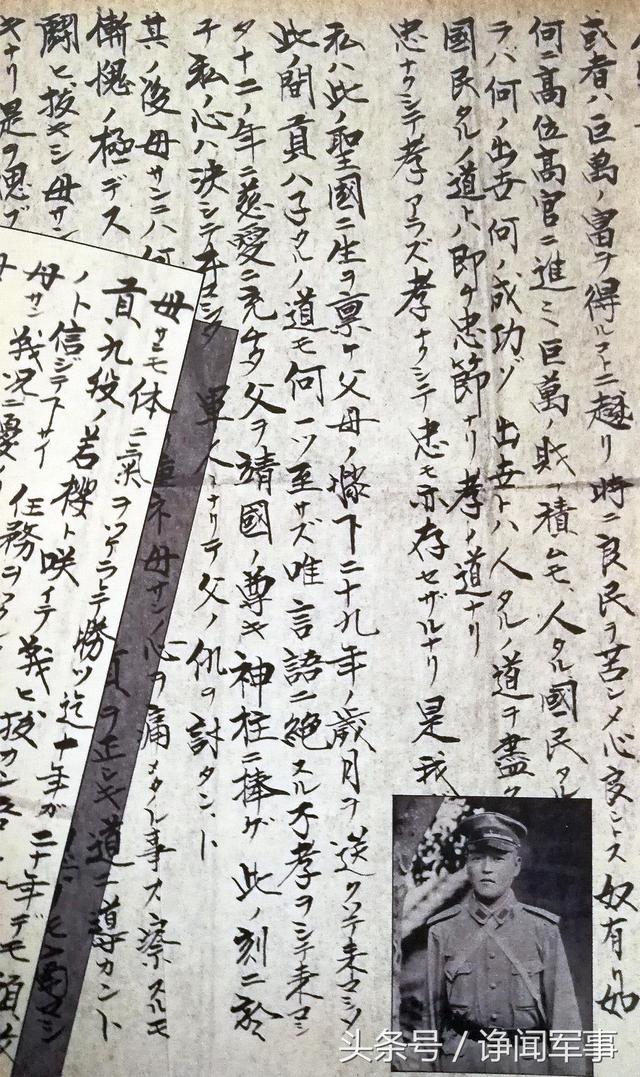 或者ハ巨萬ノ富ヲ得ルコトニ趨リ時ニ良民ヲ苦シメ心良シトス奴有リ如
何ニ高位高官ニ進ミ巨萬ノ財ヲ積ムモ、人タル國民タル
ラバ何ノ出世何ノ成功ゾ 出世トハ人タルノ道ヲ盡ク
國民タルノ道トハ即チ忠節ナリ孝ノ道ナリ
忠ナクシテ孝アラズ孝ナクシテ忠モ亦存セザルナリ 是我
私ハ此ノ聖國ニ生ヲ禀ケ父母ノ膝下二十九年ノ歳月ヲ送クツテ来マシタ
此ノ間貢ハ子タルノ道モ何一ツ至サズ唯言語ニ絶スル不孝ヲシテ来マシ
タ十二ノ年ニ慈愛ニ充ケタ父ヲ靖國ノ尊キ神柱ニ捧ゲ此ノ刻ニ於
テ私ノ心ハ決シテ マシタ 軍人トナリテ父ノ仇ヲ討タント
其ノ後母サンニハ何 重ネ母サンノ心ヲ痛メタル事カ察スルモ
慚愧ノ極デス 貢ヲ正シキ道ニ導カント
闘ヒ抜キシ母サン
キナリ是ヲ愧ヅ
母サンモ体ニ氣ヲツケラレテ勝ツ迄十年ガ二十年デモ頑
貢ハ九段ノ若櫻ト咲イテ 抜カン
ノト信ジテ下サイ 任務ヲ
母サン
头条号 / 诤闻军事